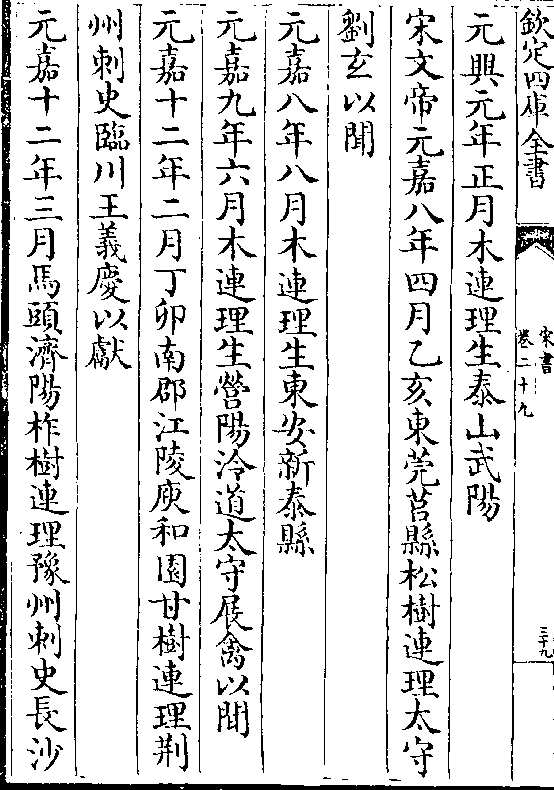 欽定四庫全書
宋書
卷二十九
三十九
元興元年正月木連理生泰山武陽
宋文帝元嘉八年四月乙亥東莞莒縣松樹連理太守
劉玄以聞
元嘉八年八月木連理生東安新泰縣
元嘉九年六月木連理生營陽泠道太守展禽以聞
元嘉十二年二月丁卯南郡江陵庾和園甘樹連理荆
州刺史臨川王義慶以獻
元嘉十二年三月馬頭濟陽柞樹連理豫州刺史長沙